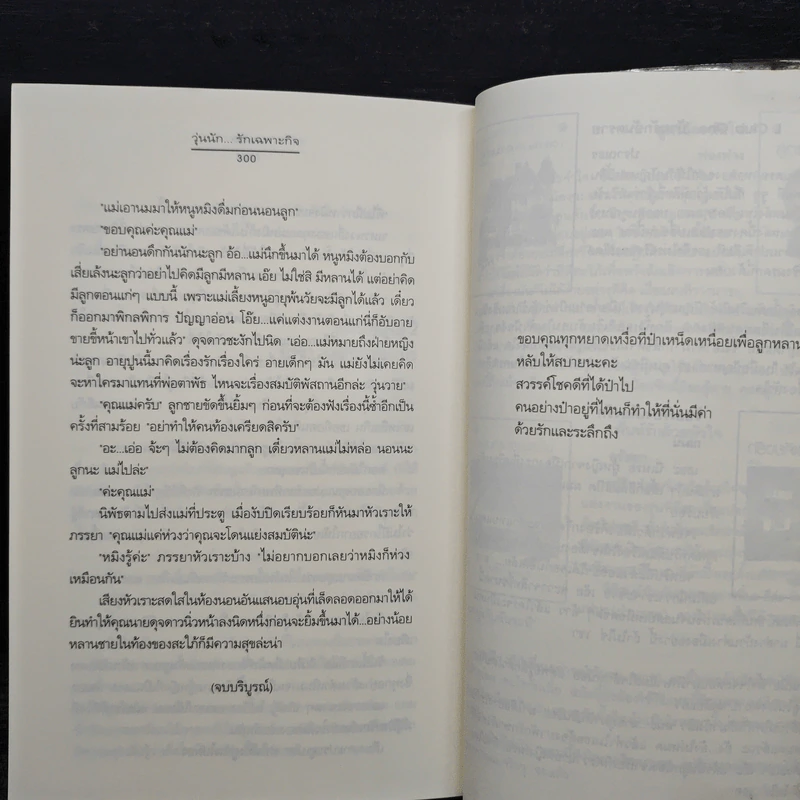 วุ่นนัก... รักเฉพาะกิจ
300
"แม่เอานมมาให้หนูหมิงดื่มก่อนนอนลูก"
"ขอบคุณค่ะคุณแม่"
"อย่านอนดึกกันนักนะลูก อ้อ...แม่นึกขึ้นมาได้ หนูหมิงต้องบอกกับ
เสี่ยเล้งนะลูกว่าอย่าไปคิดมีลูกมีหลาน เอ๊ย ไม่ใช่สิ มีหลานได้ แต่อย่าคิด
มีลูกตอนแก่ๆ แบบนี้ เพราะแม่เลี้ยงหนูอายุพ้นวัยจะมีลูกได้แล้ว เดี๋ยว
ก็ออกมาพิกลพิการ ปัญญาอ่อน โอ๊ย...แค่แต่งงานตอนแก่นี่ก็อับอาย
ขายขี้หน้าเขาไปทั่วแล้ว" ดุจดาวชะงักไปนิด "เอ่อ...แม่หมายถึงฝ่ายหญิง
น่ะลูก อายุปูนนี้มาคิดเรื่องรักเรื่องใคร่ อายเด็กๆ มัน แม่ยังไม่เคยคิด
จะหาใครมาแทนที่พ่อตาพัธ ไหนจะเรื่องสมบัติพัสถานอีกล่ะ วุ่นวาย"
"คุณแม่ครับ" ลูกชายขัดขึ้นยิ้มๆ ก่อนที่จะต้องฟังเรื่องนี้ซ้ำอีกเป็น
ครั้งที่สามร้อย "อย่าทำให้คนท้องเครียดสิครับ"
"อะ...เอ่อ จ้ะๆ ไม่ต้องคิดมากลูก เดี๋ยวหลานแม่ไม่หล่อ นอนนะ
ลูกนะ แม่ไปล่ะ"
"ค่ะคุณแม่"
นิพัธตามไปส่งแม่ที่ประตู เมื่องับปิดเรียบร้อยก็หันมาหัวเราะให้
ภรรยา "คุณแม่แค่ห่วงว่าคุณจะโดนแย่งสมบัติน่ะ"
"หมิงรู้ค่ะ" ภรรยาหัวเราะบ้าง "ไม่อยากบอกเลยว่าหมิงก็ห่วง
เหมือนกัน"
เสียงหัวเราะสดใสในห้องนอนอันแสนอบอุ่นที่เล็ดลอดออกมาให้ได้
ยินทำให้คุณนายดุจดาวนิ่วหน้าลงนิดหนึ่งก่อนจะยิ้มขึ้นมาได้...อย่างน้อย
หลานชายในท้องของสะใภ้ก็มีความสุขล่ะน่า
(จบบริบูรณ์)
ขอบคุณทุกหยาดเหงื่อที่ป๋าเหน็ดเหนื่อยเพื่อลูกหลาน
หลับให้สบายนะคะ
สวรรค์โชคดีที่ได้ป๋าไป
คนอย่างป๋าอยู่ที่ไหนก็ทำให้ที่นั่นมีค่า
ด้วยรักและระลึกถึง